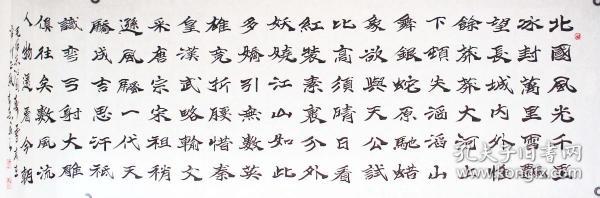 北國風光千里
冰封萬里雪飄
望長城內外惟
餘莽莽大河上
下頓失滔滔山
舞銀蛇原馳蠟
象欲與天公試
比高須晴日看
紅裝素裹分外
妖嬈江山如此
多嬌引無數英
雄競折腰惜秦
皇漢武略輸文
采唐宗宋祖稍
遜風騷一代天
驕成吉思汗祗
識彎弓射大雕
俱往矣數風流
人物還看今朝
孔夫子旧书网